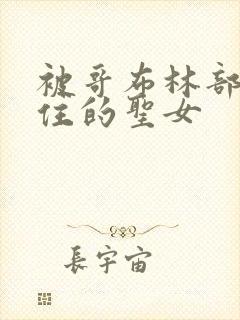 被哥布林部
住的聖女
長宇宙